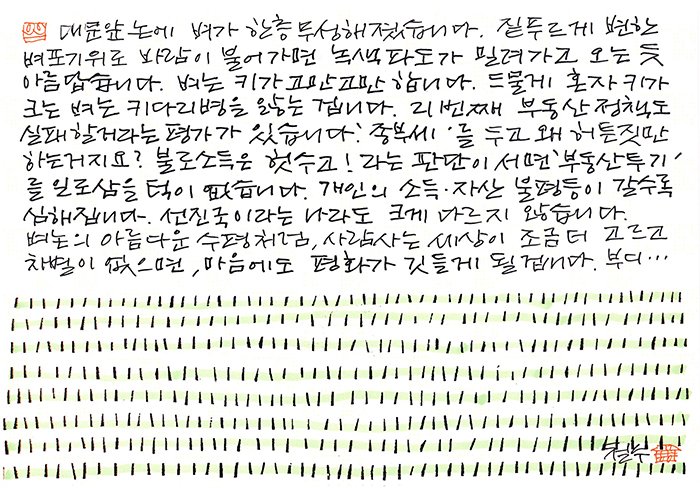 대문앞 논에 벼가 한층 무성해졌습니다. 짙푸르게 변한
벼포기위로 바람이 불어가면 녹색파도가 밀려가고 오는 듯
아름답습니다. 벼는 키가 고만고만 합니다. 드물게 혼자 키가
크는 벼는 키다리병을 앓는 겁니다. 21번째 부동산정책도
실패할거라는 평가가 있습니다. '종부세'를 두고 왜 허튼짓만
하는거지요? 불로소득은 헛수고! 라는 판단이 서면 '부동산투기'
를 일로삼을 턱이 없습니다. 개인의 소득·자산 불평등이 갈수록
심해집니다. 선진국이라는 나라도 크게 다르지 않습니다.
벼논의 아름다운 수평처럼, 사람사는 세상이 조금 더 고르고
차별이 없으면, 마음에도 평화가 깃들게 될겁니다. 부디…
철수